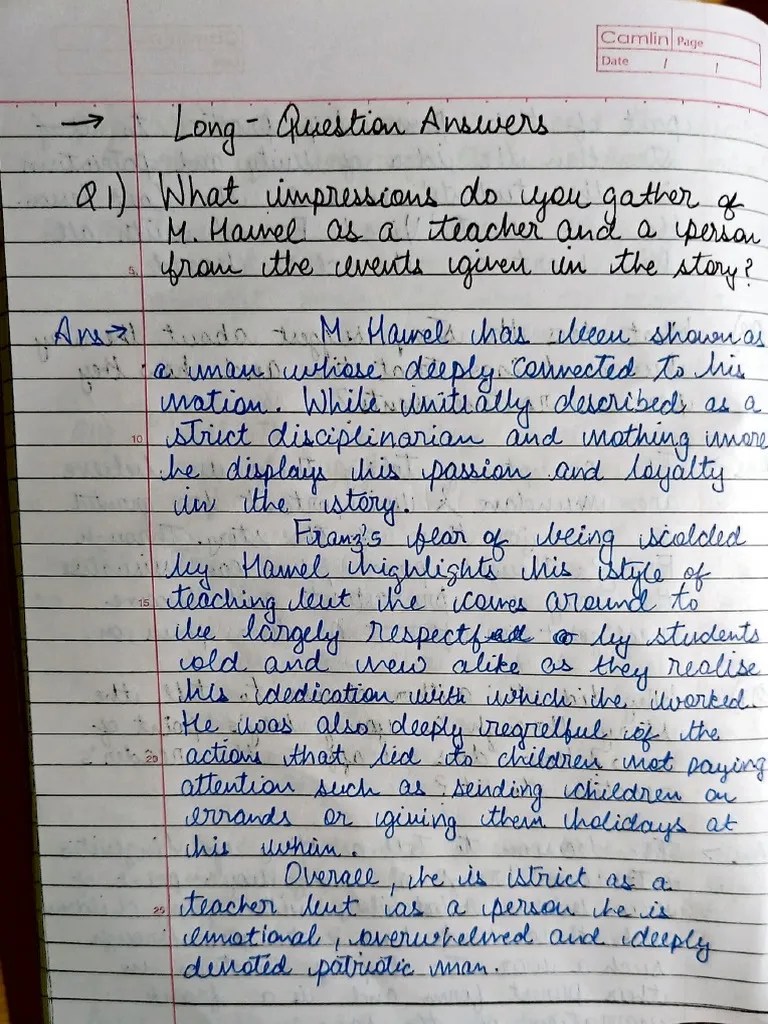 Camlin Page
Date / /
→ Long - Question Answers
Q1) What impressions do you gather of
M. Hamel as a teacher and a person
5 from the events given in the story?
Ans→ M. Hamel has been shown as
a man whose deeply connected to his
nation. While initially described as a
10 strict disciplinarian and nothing more
he displays his passion and loyalty
in the story.
Franz's fear of being scolded
by Hamel highlights his style of
15 teaching but he comes around to
be largely respected by students
old and new alike as they realise
his dedication with which he worked.
He was also deeply regretful of the
20 actions that led to children not paying
attention such as sending children on
errands or giving them holidays at
his whim.
Overall, he is strict as a
25 teacher but as a person he is
emotional, overwhelmed and deeply
devoted patriotic man.